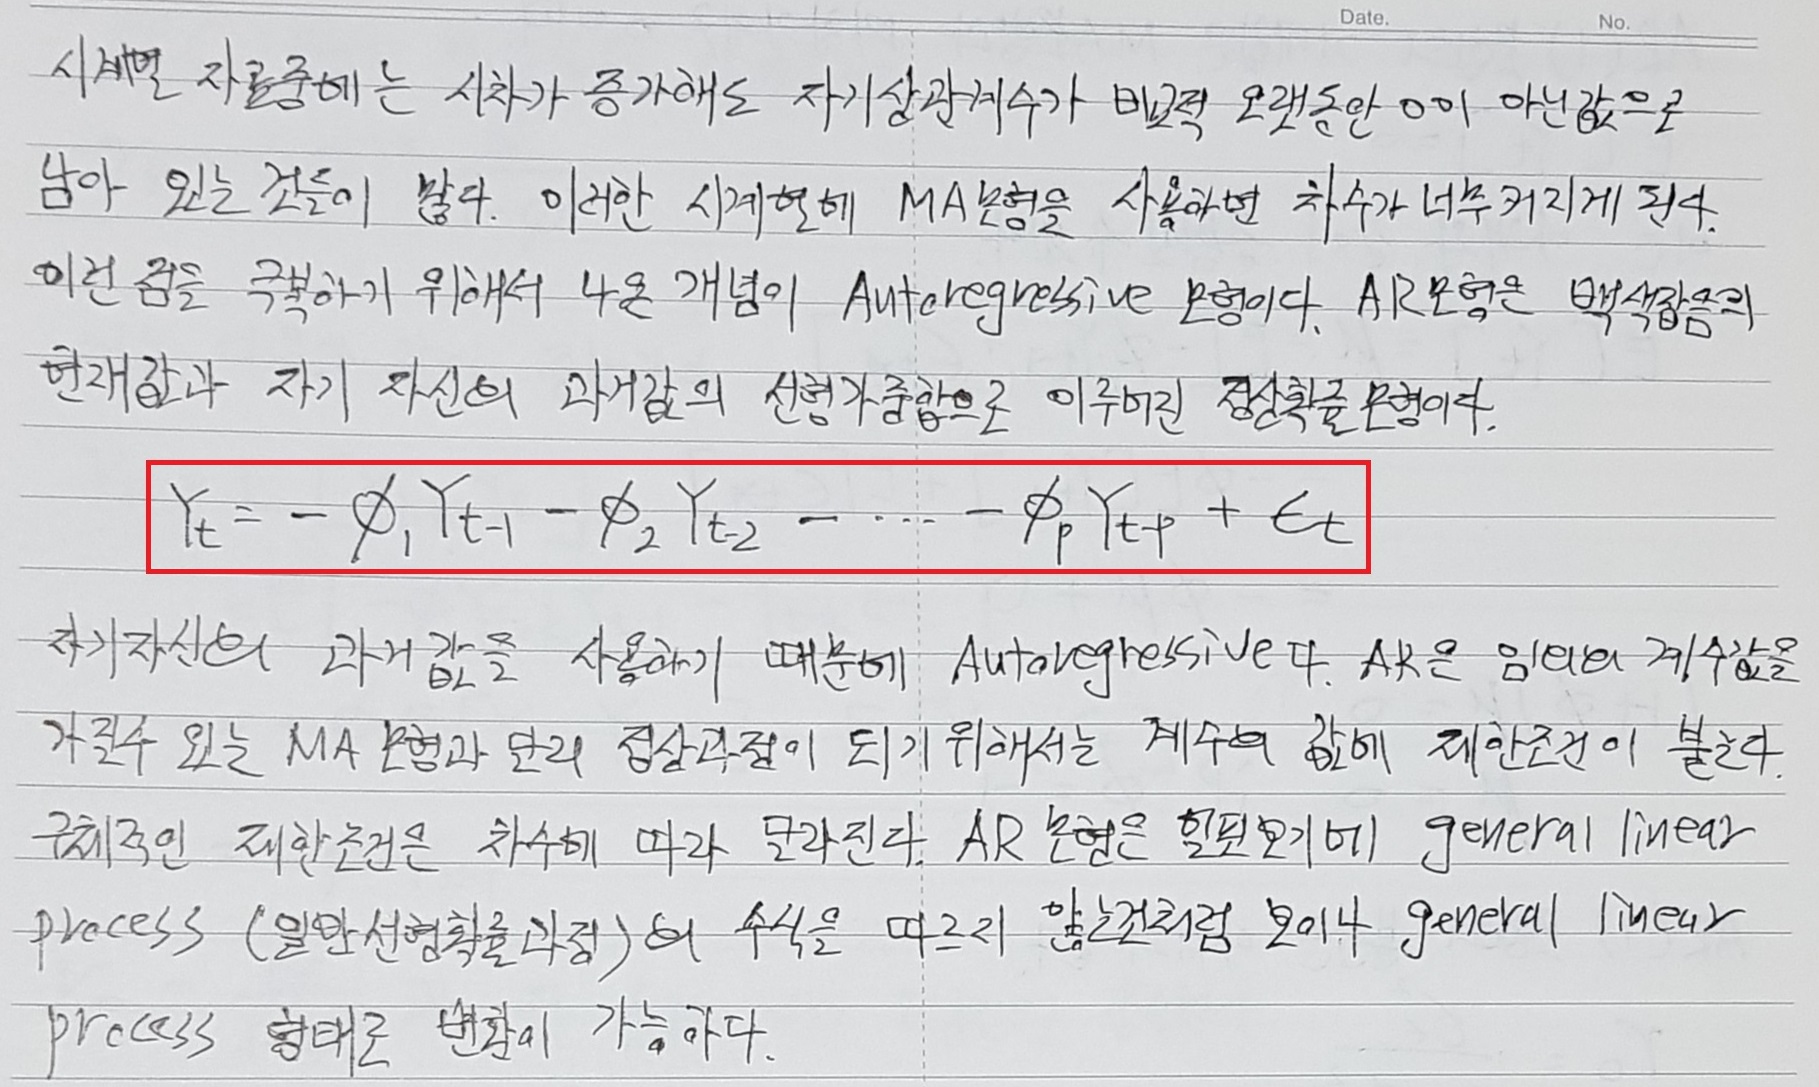 Date. No.
시계열 자료중에는 시차가 증가해도 자기상관계수가 비교적 오랫동안 0이 아닌값으로
남아 있는 것들이 많다. 이러한 시계열에 MA모형을 사용하면 차수가 너무커지게 된다.
이런 점을 극복하기 위해서 나온 개념이 Autoregressive 모형이다. AR모형은 백색잡음의
현재값과 자기 자신의 과거값의 선형가중합으로 이루어진 정상확률모형이다.
Yt = - ϕ₁Yt-1 - ϕ₂Yt-2 - ... - ϕpYt-p + ϵt
자기자신의 과거값을 사용하기 때문에 Autoregressive다. AR은 임의의 계수값을
가질수 있는 MA모형과 달리 정상과정이 되기위해서는 계수의 값에 제한조건이 붙는다.
구체적인 제한조건은 차수에 따라 달라진다. AR모형은 힐핏보기에 general linear
process (일반선형확률과정)의 수식을 따르지 않는것처럼 보이나 general linear
process 형태로 변환이 가능하다.